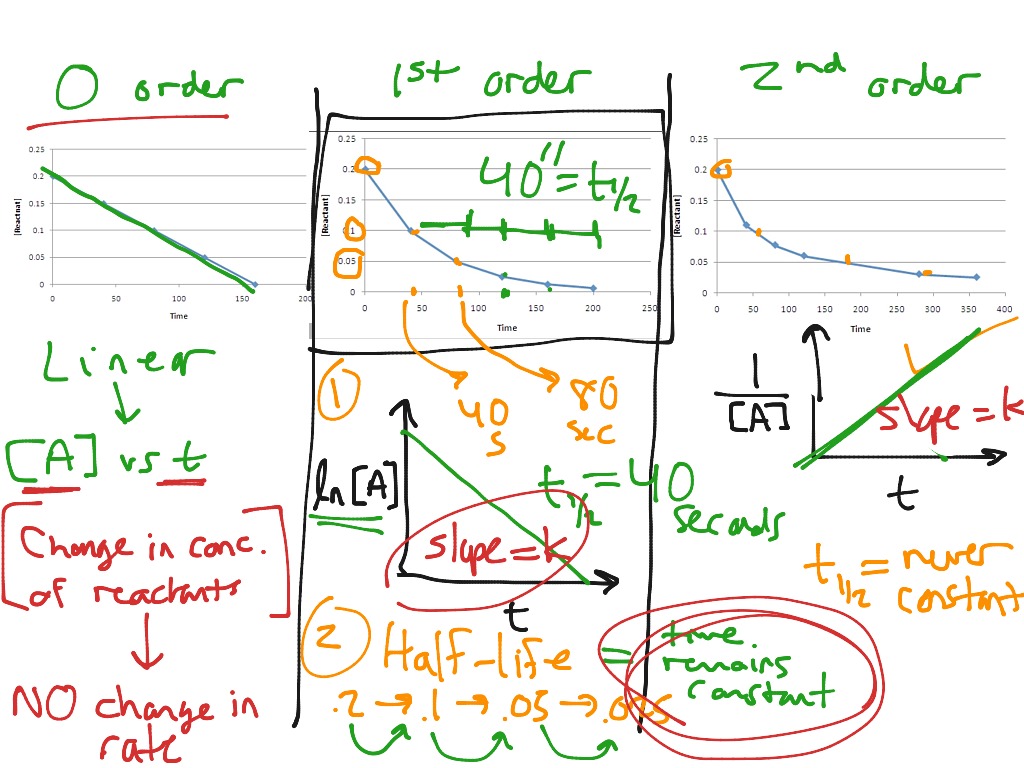 0 order
0.25
0.2
0.15
0.1
0.05
0
0
50
100
150
200
[Reactnat]
Time
Linear
[A] vs t
Change in conc.
of reactants
NO change in
rate
1st order
0.25
0.2
0.15
0.1
0.05
0
0
50
100
150
200
250
[Reactant]
Time
40" = t1/2
1
40
s
80
sec
ln [A]
t1/2 = 40
seconds
slope = k
t
2
Half-life
= time
remains
constant
.2 → .1 → .05 → .025
2nd order
0.25
0.2
0.15
0.1
0.05
0
0
50
100
150
200
250
300
350
400
[Reactant]
Time
1
[A]
slope = k
t
t1/2 = never
constant